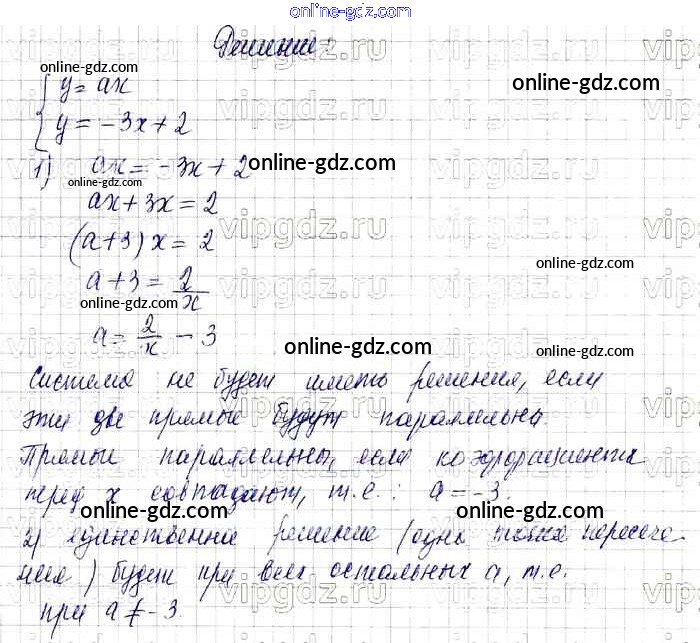 online-gdz.com
Решение:
online-gdz.com
y = ax
online-gdz.com
y = -3x + 2
1) ax = -3x + 2
online-gdz.com
online-gdz.com
ax + 3x = 2
(a+3) x = 2
online-gdz.com
a + 3 = 2/x
online-gdz.com
a = 2/x - 3
online-gdz.com
Система не будет иметь решения, если
эти две прямые будут параллельны.
Прямые параллельны, если коэффициенты
перед x совпадают, т.е.: a = -3.
2) единственное решение (одна точка пересече-
ния) будет при всех остальных a, т.е.
при a ≠ -3
vipgdz.ru